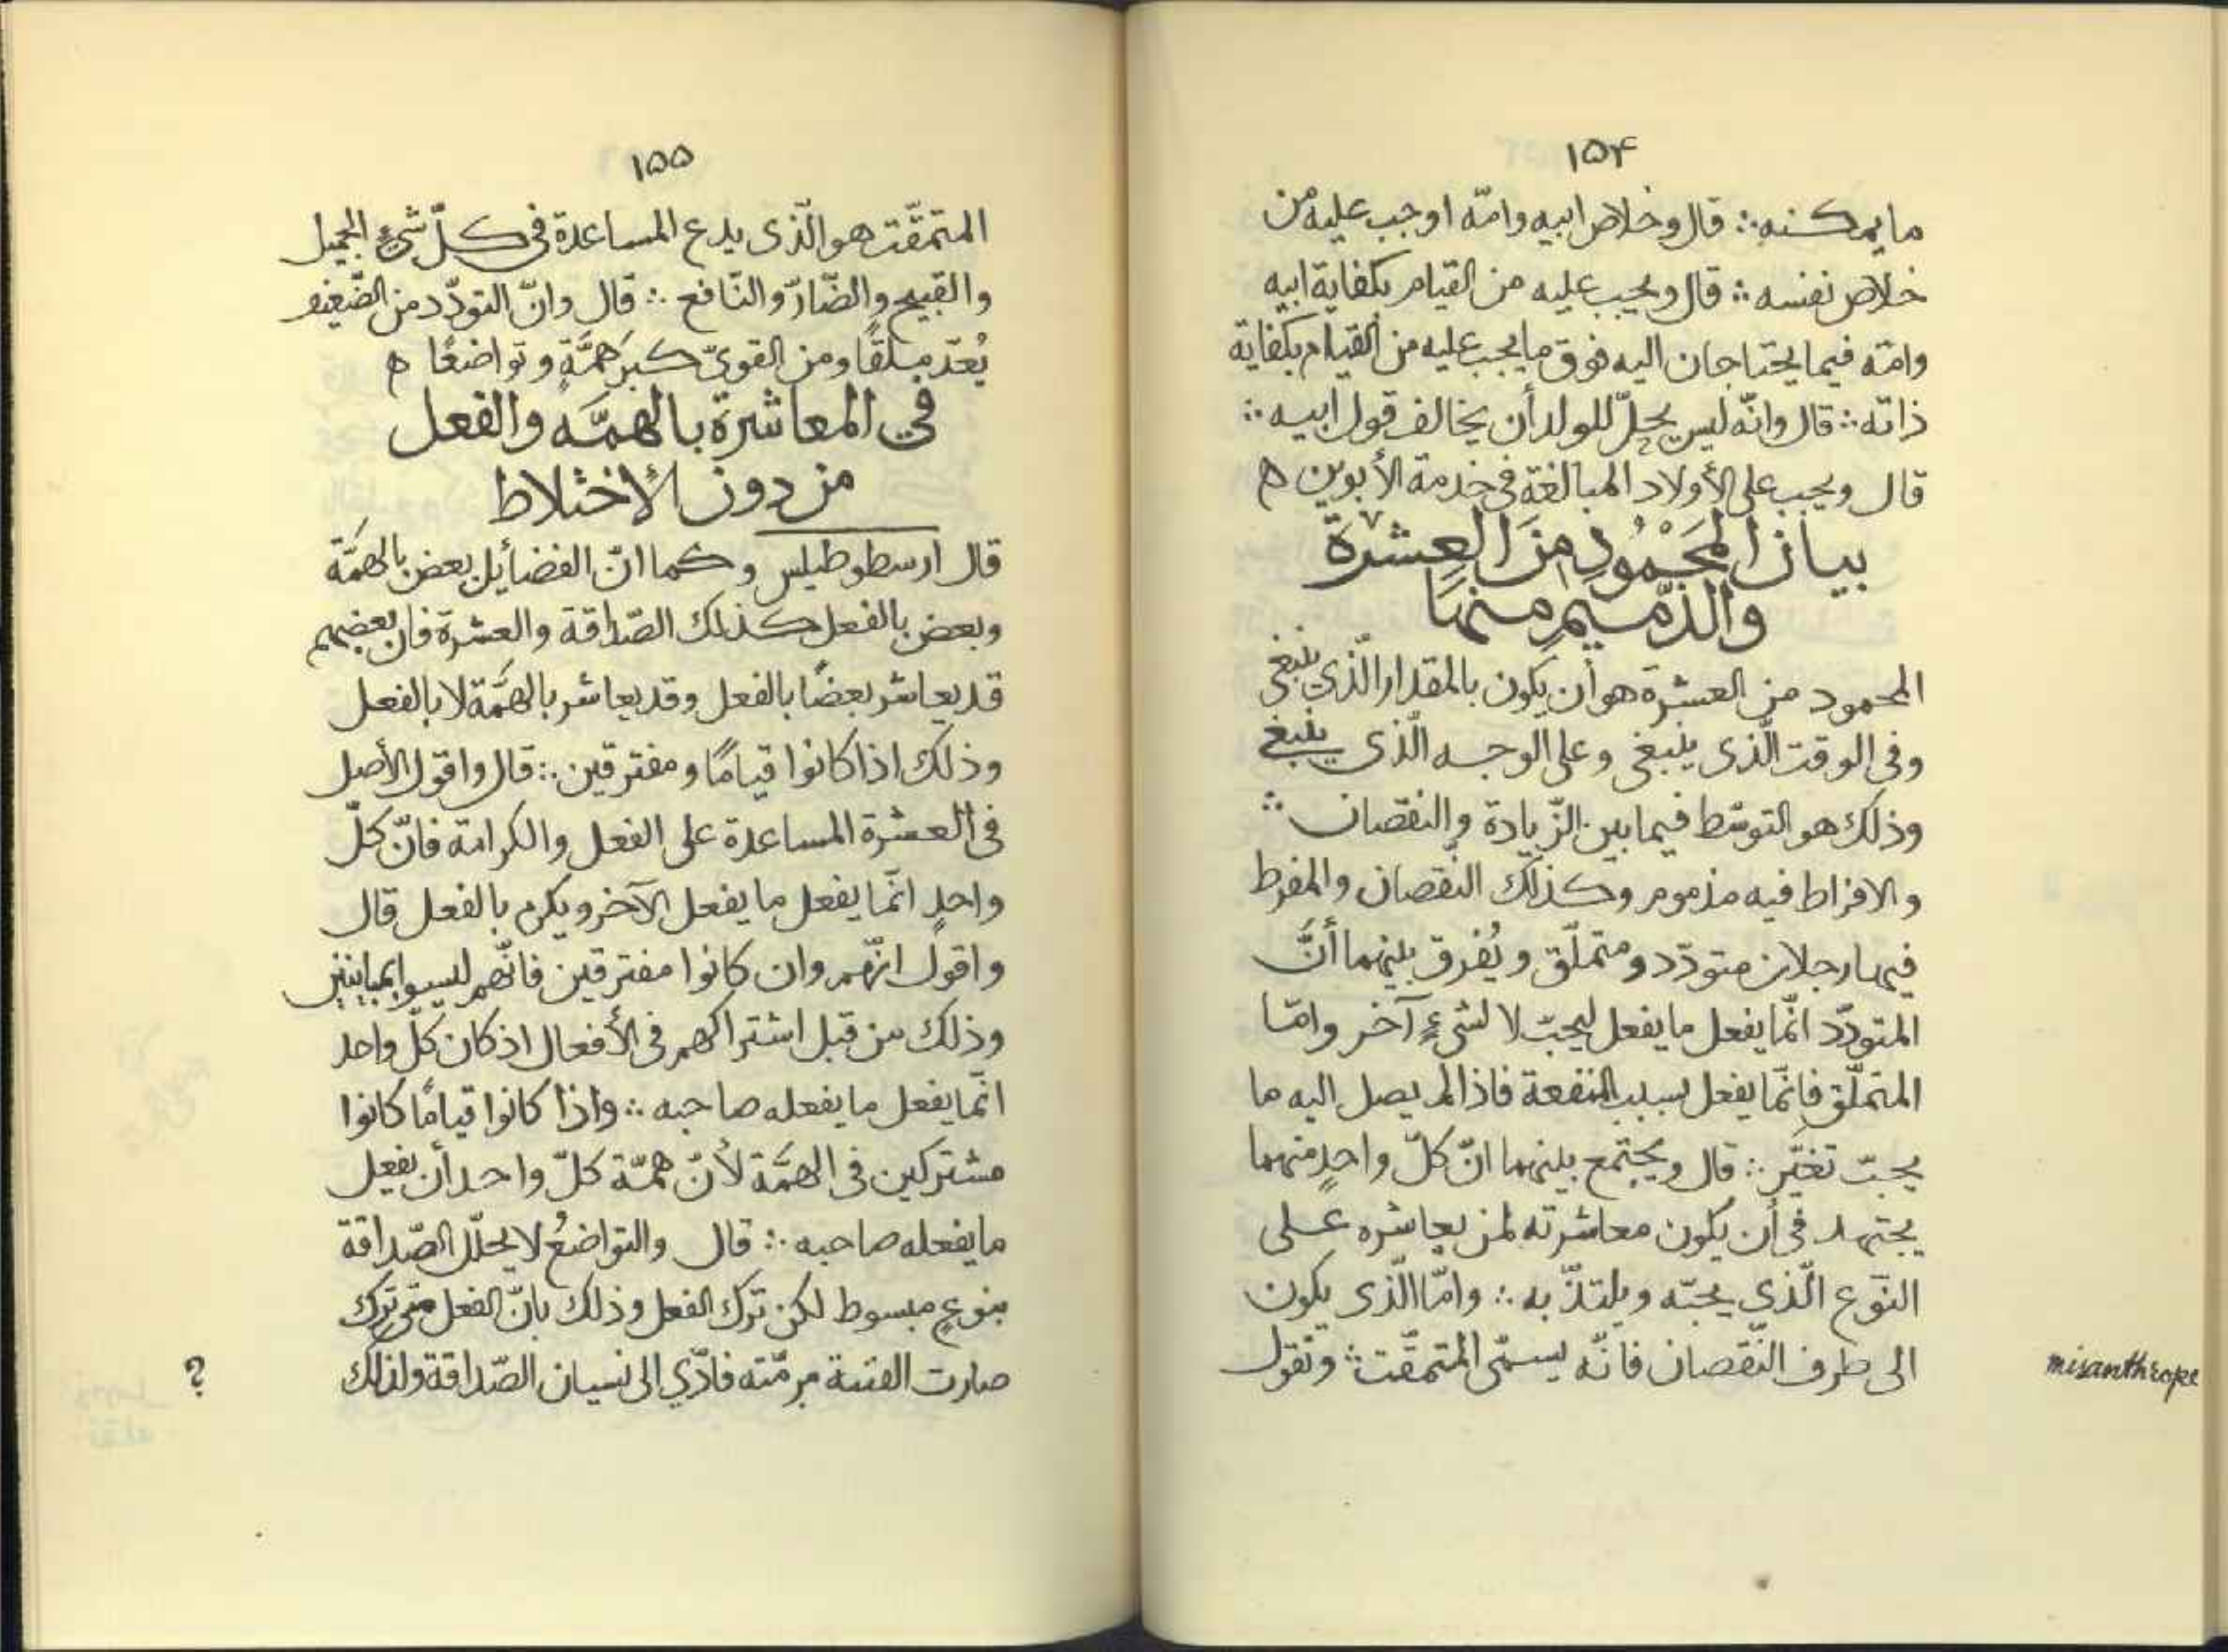 ١٥٤
ما يمكنه ∴ قال وخلاص ابيه وامّه اوجب عليه من
خلاص نفسه ∴ قال ويجب عليه من القيام بكفاية ابيه
وامّه فيما يحتاجان اليه فوق ما يجب عليه من القيام بكفاية
ذاته ∴ قال وانّه ليس يحلّ للولد أن يخالف قول ابيه ∴
قال ويجب على الأولاد المبالغة فى خدمة الأبوين ه
بيان المَحْمُودِ مِنَ العِشْرَة
والذّميمِ منهَا
المحمود من العشرة هو أن يكون بالمقدار الّذي ينبغى
وفى الوقت الّذى ينبغى وعلى الوجه الّذى ينبغى
وذلك هو التوسّط فيما بين الزّيادة والنقصان ∴
والافراط فيه مذموم وكذلك النّقصان والمفرط
فيها رجلان متودّد ومتملّق ويُفرق بينهما أنَّ
المتودّد انّما يفعل ما يفعل ليحبّ لا لشىءٍ آخر وامّا
المتملّق فانّما يفعل بسبب المنفعة فاذا لم يصل اليه ما
يحبّ تغيّر ∴ قال ويجتمع بينهما انّ كلّ واحدٍ منهما
يجتهد فى أن يكون معاشرته لمن يعاشره على
النّوع الّذي يحبّه ويلتذّ به ∴ وامّا الّذى يكون
الى طرف النّقصان فانّه يسمّى المتمقّت ∴ ونقول
misanthrope
١٥٥
المتمقّت هو الّذى يدع المساعدة فى كلّ شىءٍ الجميل
والقبيح والضّارّ والنّافع ∴ قال وانّ التودّد من الضّعيف
يُعدّ ملقًا ومن القويّ كبرَ همَّةٍ وتواضعًا ه
في المعاشرة بالهمَّه والفعل
من دون الأختلاط
قال ارسطوطيلس وكما انّ الفضائل بعض بالهمَّة
وبعض بالفعل كذلك الصّداقة والعشرة فان بعضهم
قد يعاشر بعضًا بالفعل وقد يعاشر بالهمَّة لا بالفعل
وذلك اذا كانوا قيامًا ومفترقين ∴ قال واقول الأصل
فى العشرة المساعدة على الفعل والكرامة فانّ كلّ
واحدٍ انّما يفعل ما يفعل الآخر ويكرم بالفعل قال
واقول انّهم وان كانوا مفترقين فانّهم ليسوا بمباينين
وذلك من قبل اشتراكهم فى الأفعال اذ كان كلّ واحد
انّما يفعل ما يفعله صاحبه ∴ واذا كانوا قيامًا كانوا
مشتركين فى الهمَّة لأنّ همّة كلّ واحد أن يفعل
ما يفعله صاحبه ∴ قال والتواضعُ لا يحلّل الصّداقة
بنوعٍ مبسوط لكن ترك الفعل وذلك بانّ الفعل متى ترك
صارت مرمّته فادّي الى نسيان الصّداقة ولذلك
?